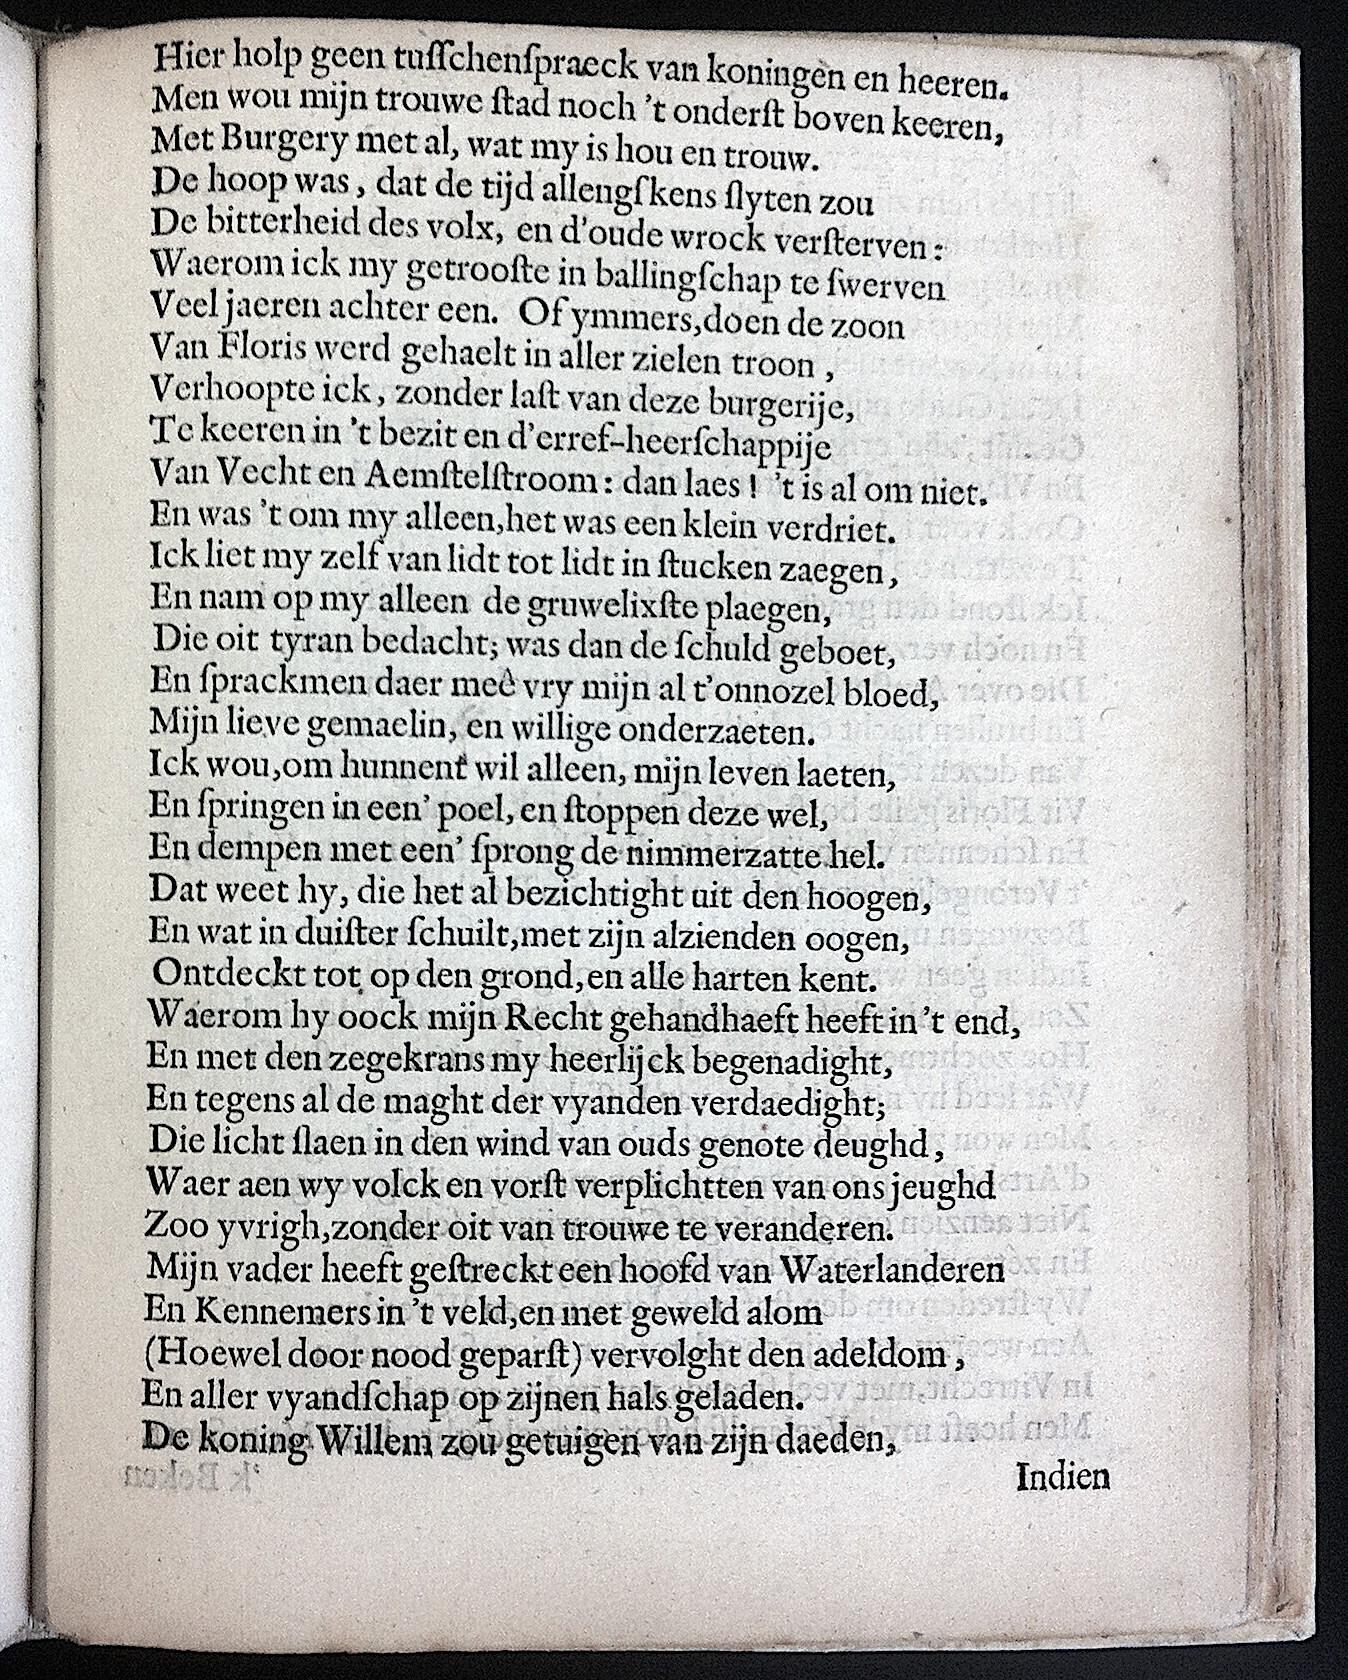 Hier holp geen tuſſchenſpraeck van koningen en heeren.
Men wou mijn trouwe ſtad noch 't onderſt boven keeren,
Met Burgery met al, wat my is hou en trouw.
De hoop was, dat de tijd allengſkens ſlyten zou
De bitterheid des volx, en d'oude wrock verſterven:
Waerom ick my getrooſte in ballingſchap te ſwerven
Veel jaeren achter een. Of ymmers,doen de zoon
Van Floris werd gehaelt in aller zielen troon,
Verhoopte ick, zonder laſt van deze burgerije,
Te keeren in 't bezit en d'erref-heerſchappije
Van Vecht en Aemſtelſtroom: dan laes! 't is al om niet.
En was 't om my alleen,het was een klein verdriet.
Ick liet my zelf van lidt tot lidt in ſtucken zaegen,
En nam op my alleen de gruwelixſte plaegen,
Die oit tyran bedacht; was dan de ſchuld geboet,
En ſprackmen daer meê vry mijn al t'onnozel bloed,
Mijn lieve gemaelin, en willige onderzaeten.
Ick wou,om hunnent wil alleen, mijn leven laeten,
En ſpringen in een' poel, en ſtoppen deze wel,
En dempen met een' ſprong de nimmerzatte hel.
Dat weet hy, die het al bezichtight uit den hoogen,
En wat in duiſter ſchuilt,met zijn alzienden oogen,
Ontdeckt tot op den grond,en alle harten kent.
Waerom hy oock mijn Recht gehandhaeft heeft in 't end,
En met den zegekrans my heerlijck begenadight,
En tegens al de maght der vyanden verdaedight;
Die licht ſlaen in den wind van ouds genote deughd,
Waer aen wy volck en vorſt verplichtten van ons jeughd
Zoo yvrigh,zonder oit van trouwe te veranderen.
Mijn vader heeft geſtreckt een hoofd van Waterlanderen
En Kennemers in 't veld,en met geweld alom
(Hoewel door nood geparſt) vervolght den adeldom,
En aller vyandſchap op zijnen hals geladen.
De koning Willem zou getuigen van zijn daeden,
Indien